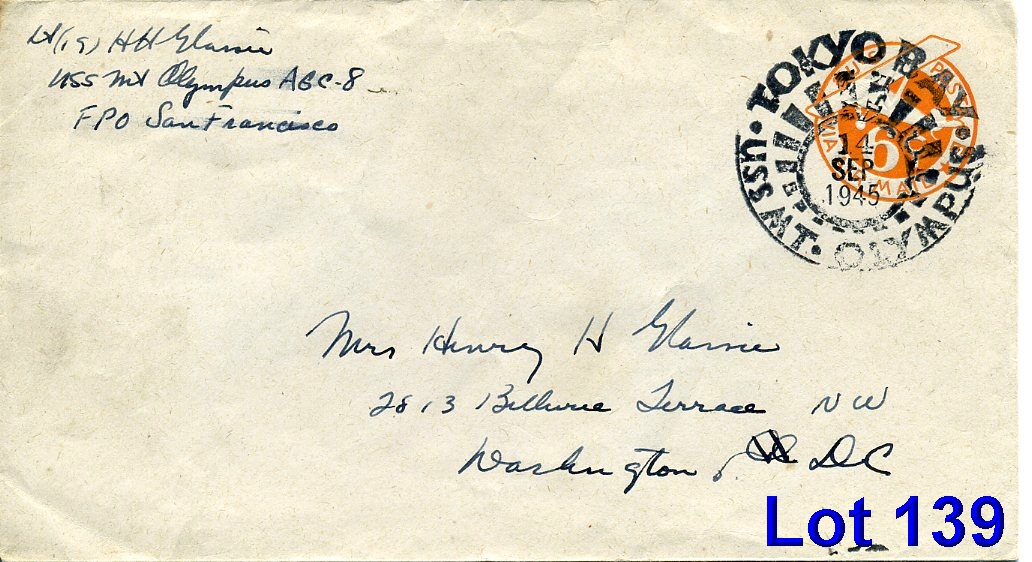 Lt (jg) H H Glassie
USS Mt Olympus AGC-8
FPO San Francisco
TOKYO BAY
14
SEP
1945
USS MT. OLYMPUS
VIA AIR MAIL
6
Mrs Henry H Glassie
2813 Bellevue Terrace NW
Washington, DC
Lot 139